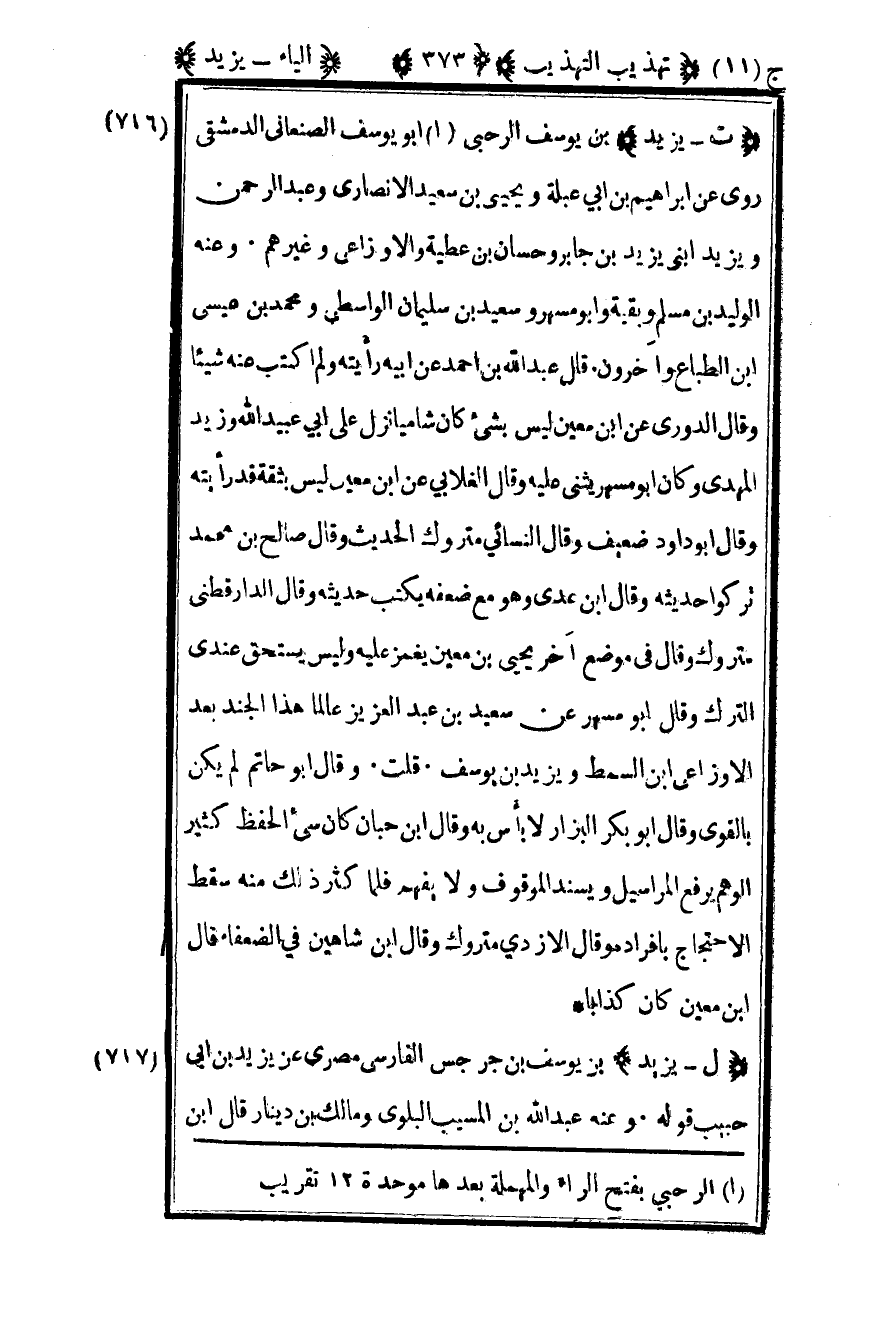 ج (١١) ﴿ تهذيب التهذيب ﴾ ﴿ ٣٧٣ ﴾ ﴿ الياء ـ يزيد ﴾
﴿ ت ـ يزيد ﴾ بن يوسف الرحبى (١) ابو يوسف الصنعانى الدمشقى (٧١٦)
روى عن ابراهيم بن ابي عبلة و يحيى بن سعيد الانصارى وعبد الرحمن
و يزيد ابنى يزيد بن جابر وحسان بن عطية والاوزاعى و غيرهم ٠ و عنه
الوليد بن مسلم وبقية وابو مسهر و سعيد بن سليمان الواسطي و محمد بن عيسى
ابن الطباع وآخرون. قال عبد الله بن احمد عن ابيه رأيته ولم اكتب عنه شيئا
وقال الدورى عن ابن معين ليس بشئ كان شاميا نزل على ابي عبيد الله وزيد
المهدى وكان ابو مسهر يثنى عليه وقال الغلابي عن ابن معين ليس بثقة قد رأيته
وقال ابو داود ضعيف وقال النسائي متروك الحديث وقال صالح بن محمد
تركوا حديثه وقال ابن عدى وهو مع ضعفه يكتب حديثه وقال الدارقطنى
متروك وقال فى موضع آخر يحيى بن معين يغمز عليه وليس يستحق عندى
الترك وقال ابو مسهر عن سعيد بن عبد العزيز عالما هذا الجند بعد
الاوزاعى ابن السمط و يزيد بن يوسف ٠ قلت ٠ و قال ابو حاتم لم يكن
بالقوى وقال ابو بكر البزار لا بأس به وقال ابن حبان كان سئ الحفظ كثير
الوهم يرفع المراسيل و يسند الموقوف و لا يفهم فلما كثر ذلك منه سقط
الاحتجاج بافراده وقال الازدي متروك وقال ابن شاهين في الضعفاء قال
ابن معين كان كذابا *
﴿ ل ـ يزيد ﴾ بن يوسف بن جرجس الفارسى مصرى عن يزيد بن ابي (٧١٧)
حبيب قوله ٠ و عنه عبد الله بن المسيب البلوى ومالك بن دينار قال ابن
(١) الرحبي بفتح الراء والمهملة بعدها موحدة ١٢ تقريب